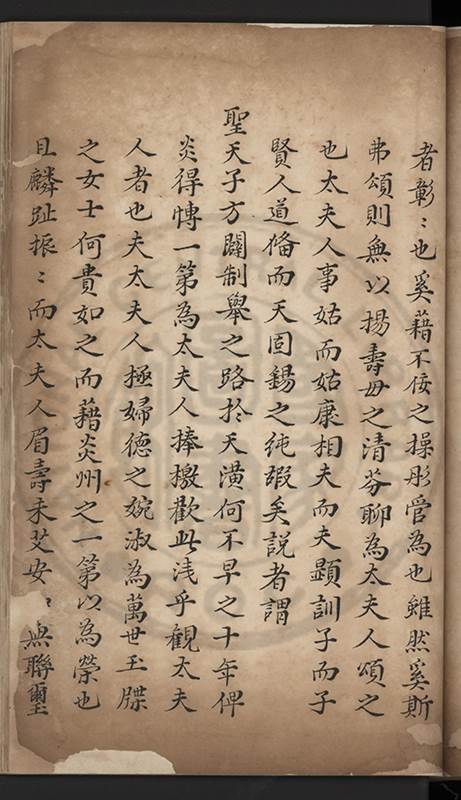 者彰〻也奚藉不佞之操彤管為也雖然奚斯
弗頌則無以揚壽母之清芬聊為太夫人頌之
也太夫人事姑而姑康相夫而夫顯訓子而子
賢人道俻而天固錫之純嘏矣説者謂
聖天子方闢制舉之路於天潢何不早之十年俾
炎得愽一第為太夫人捧檄歡此浅乎觀太夫
人者也夫太夫人極婦德之婉淑為萬世玉牒
之女士何貴如之而藉炎州之一第以為榮也
且麟趾振〻而太夫人眉壽未艾安〻無聯璽